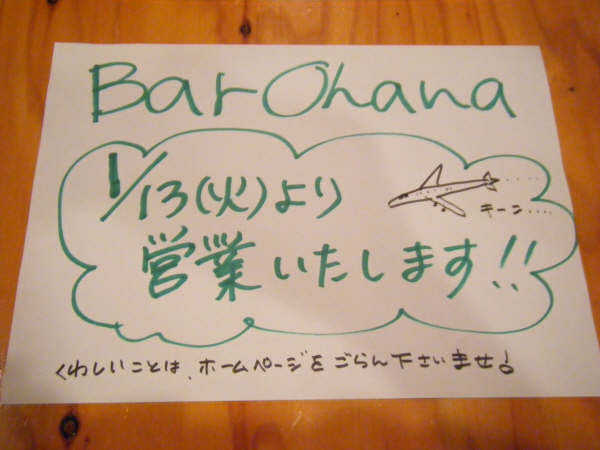 Bar Ohana
1/13(火)より
キーン....
営業いたします!!
くわしいことは、ホームページをごらん下さいませ!